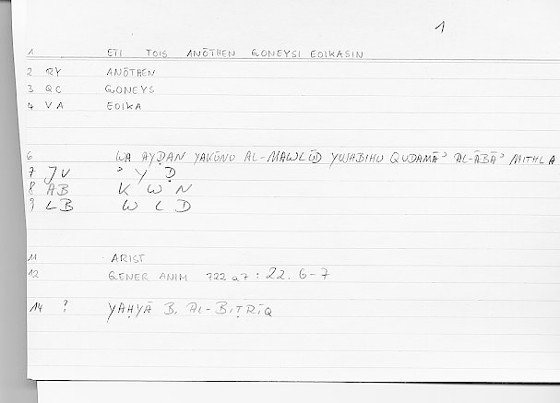 1
1 ETI TOIS ANŌTHEN GONEYSI EOIKASIN
2 RY ANŌTHEN
3 GC GONEYS
4 VA EOIKA
6 WA AYḌAN YAKŪNU AL-MAWLŪD YUŠABIHU QUDAMĀʾ AL-ĀBĀʾ MITHLA
7 JV ʾ Y Ḍ
8 AB K W N
9 LB W L D
11 ARIST
12 GENER ANIM 722 a7 : 22. 6-7
14 ? YAḤYĀ B. AL-BIṬRĪQ